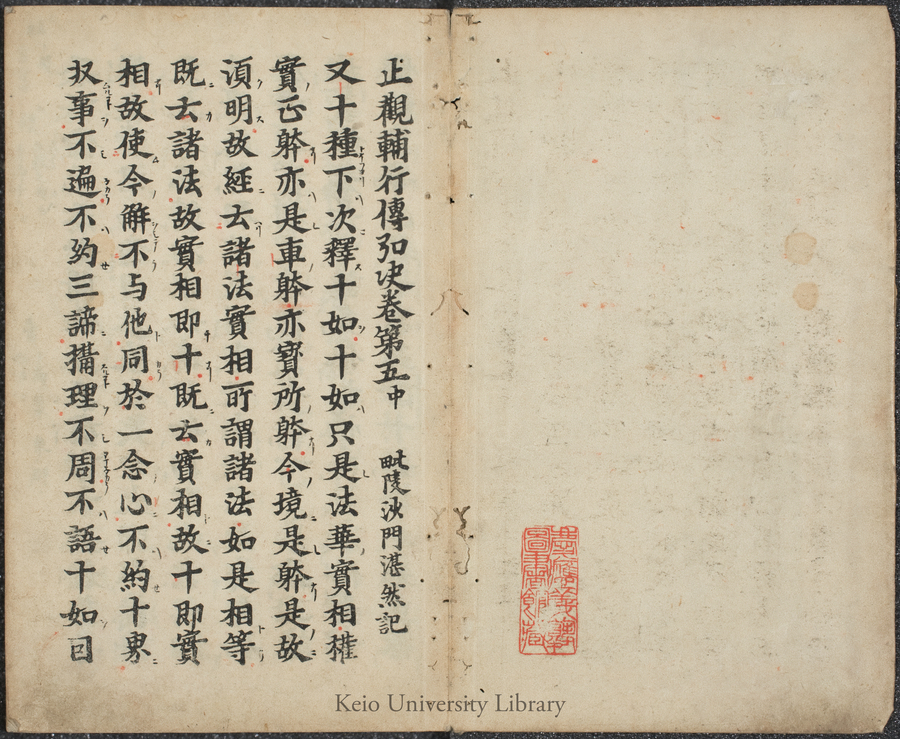 止觀輔行傳弘决卷第五中 毗陵沙門湛然記
又十種下次釋十如十如只是法華實相權
實正躰亦是車躰亦寳所躰今境是躰是故
湏明故經云諸法實相所謂諸法如是相等
既云諸法故實相即十既云實相故十即實
相故使今解不与他同於一念心不約十界
収事不遍不約三諦攝理不周不語十如因
慶應義塾
圖書館藏
Keio University Library